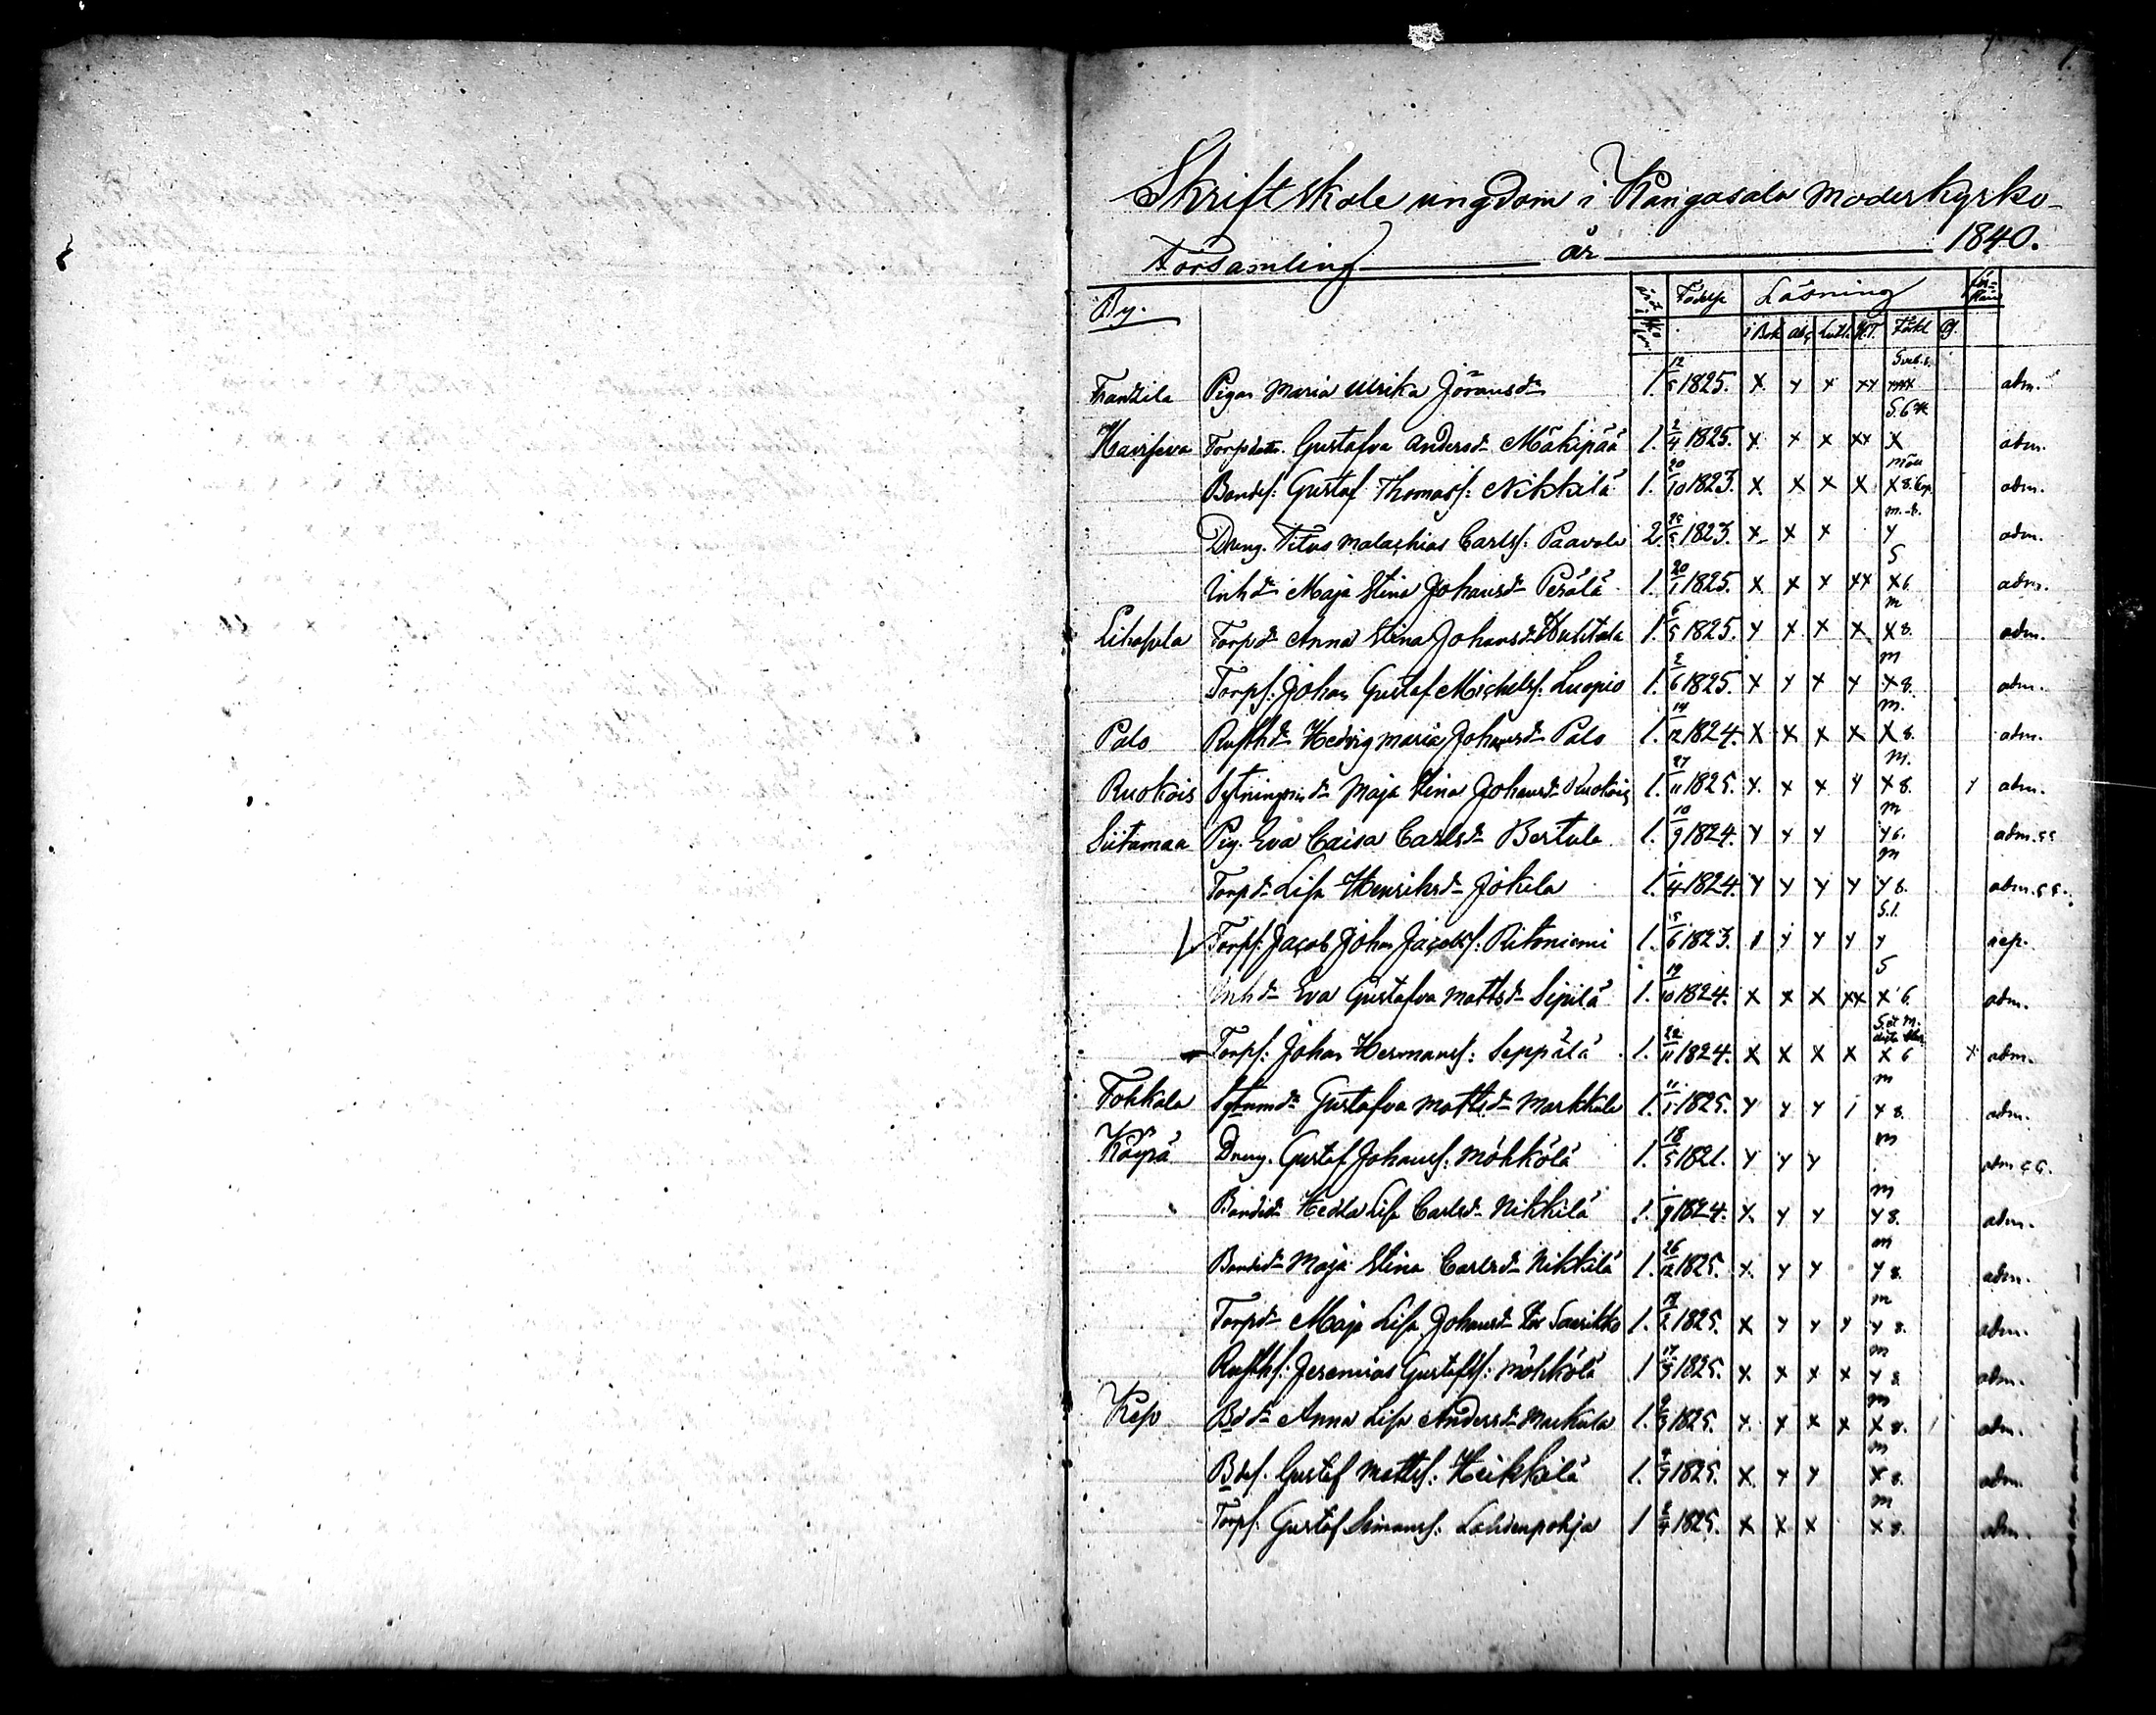 1.
Skriftskole ungdom i Kangasala moderkyrko-
Församling år 1840.
By. Födelse Läsning
i Bok abc Luth. H.T. Förkl
Frantzila Pigan Maria Ulrika Göransdr 1. 12/5 1825. x y x xx adm.
Havisevo Torpdottr. Gustafva Andersdr Mäkipää 1. 2/4 1825. x x x xx x adm.
Bondes. Gustaf Thomass: Nikkilä 1. 20/10 1823. x x x x x 8. adm.
Dreng. Titus Malachias Carls: Paavola 2. 1823. x x x y adm.
Inhdr Maja Stina Johansdr Perälä 1. 20/1 1825. x x x xx S x 6 adm.
Lihasula Torpdr Anna Stina Johansdr Huhtala 1. 6/5 1825. y x x x m x 8. adm.
Torps: Johan Gustaf Michelss. Luopio 1. 2/6 1825. x y x y m x 8. adm.
Palo Rusthdr Hedvig Maria Johansdr Palo 1. 14/12 1824. x x x x m. x 8. adm.
Ruokois Sytningsmdr Maja Stina Johansdr Ruokois 1. 27/11 1825. y x x y m. x 8. y adm.
Siitamaa Pig. Eva Caisa Carlsdr Bertula 1. 10/9 1824. y y y m y 6. adm.
Torpdr Lisa Henriksdr Jokela 1. 1/4 1824. y y y y m y 8. adm.
Torps: Jacob Johan Jacobs: Ritoniemi 1. 15/6 1823. y y y y S.1. y rep.
Inhdr Eva Gustafva Mattsdr Sipilä 1. 19/10 1824. x x x xx S x 6. adm.
Torps: Johan Hermans: Seppälä 1. 22/11 1824. x x x x S. et m. x 6 x adm.
Tohkala Sytnmdr Gustafva Mattsdr Markkula 1. 11/1 1825. y y y m x 8. adm.
Käyrä Dreng. Gustaf Johans: Möhkölä 1. 18/5 1821. y y y m adm
Bondedr Hedda Lisa Carlsdr Nikkilä 1. 1824. x. y y m y 8. adm.
Bondedr Maja Stina Carlsdr Nikkilä 1. 26/12 1825. x. y y m y 8. adm.
Torpdr Maja Lisa Johansdr Saarikko 1. 1825. x y y y m y 8. adm.
Rusths. Jeremias Gustafs: Möhkölä 1 1825. x x x x m y 8 adm.
Bddr Anna Lisa Andersdr Markula 1. 1825. x. x x x m x 8. adm.
Bds. Gustaf Matts: Heikkilä 1. 1825. x. y y m x 8. adm.
Torps. Gustaf Simons: Lahdenpohja 1 1825. x x x m x 8. adm.